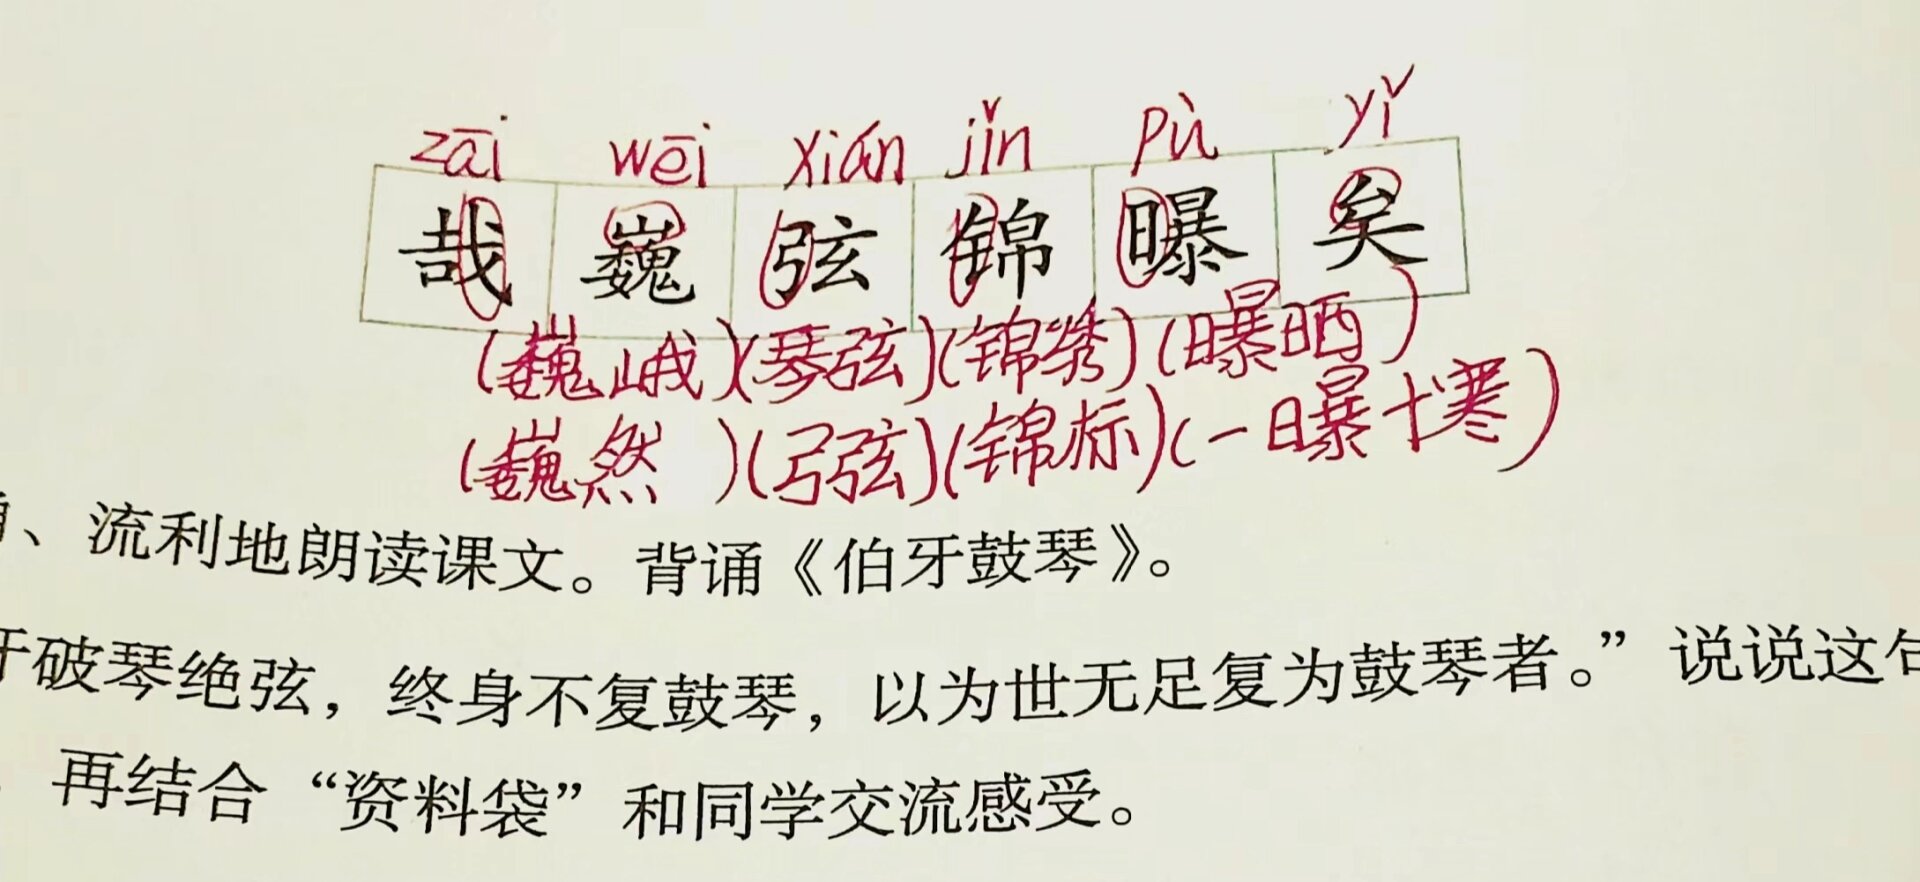 zāi wēi xián jǐn pù yǐ
哉 巍 弦 锦 曝 矣
(巍峨)(琴弦)(锦绣)(曝晒)
(巍然)(弓弦)(锦标)(一曝十寒)
、流利地朗读课文。背诵《伯牙鼓琴》。
牙破琴绝弦，终身不复鼓琴，以为世无足复为鼓琴者。”说说这句
再结合“资料袋”和同学交流感受。